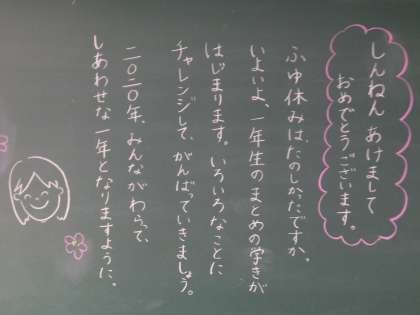 しんねん あけまして
おめでとうございます。
ふゆ休みは、たのしかったですか。
いよいよ、一年生のまとめの学きが
はじまります。いろいろなことに
チャレンジして、がんばっていきましょう。
二〇二〇年、みんながわらって、
しあわせな一年となりますように。